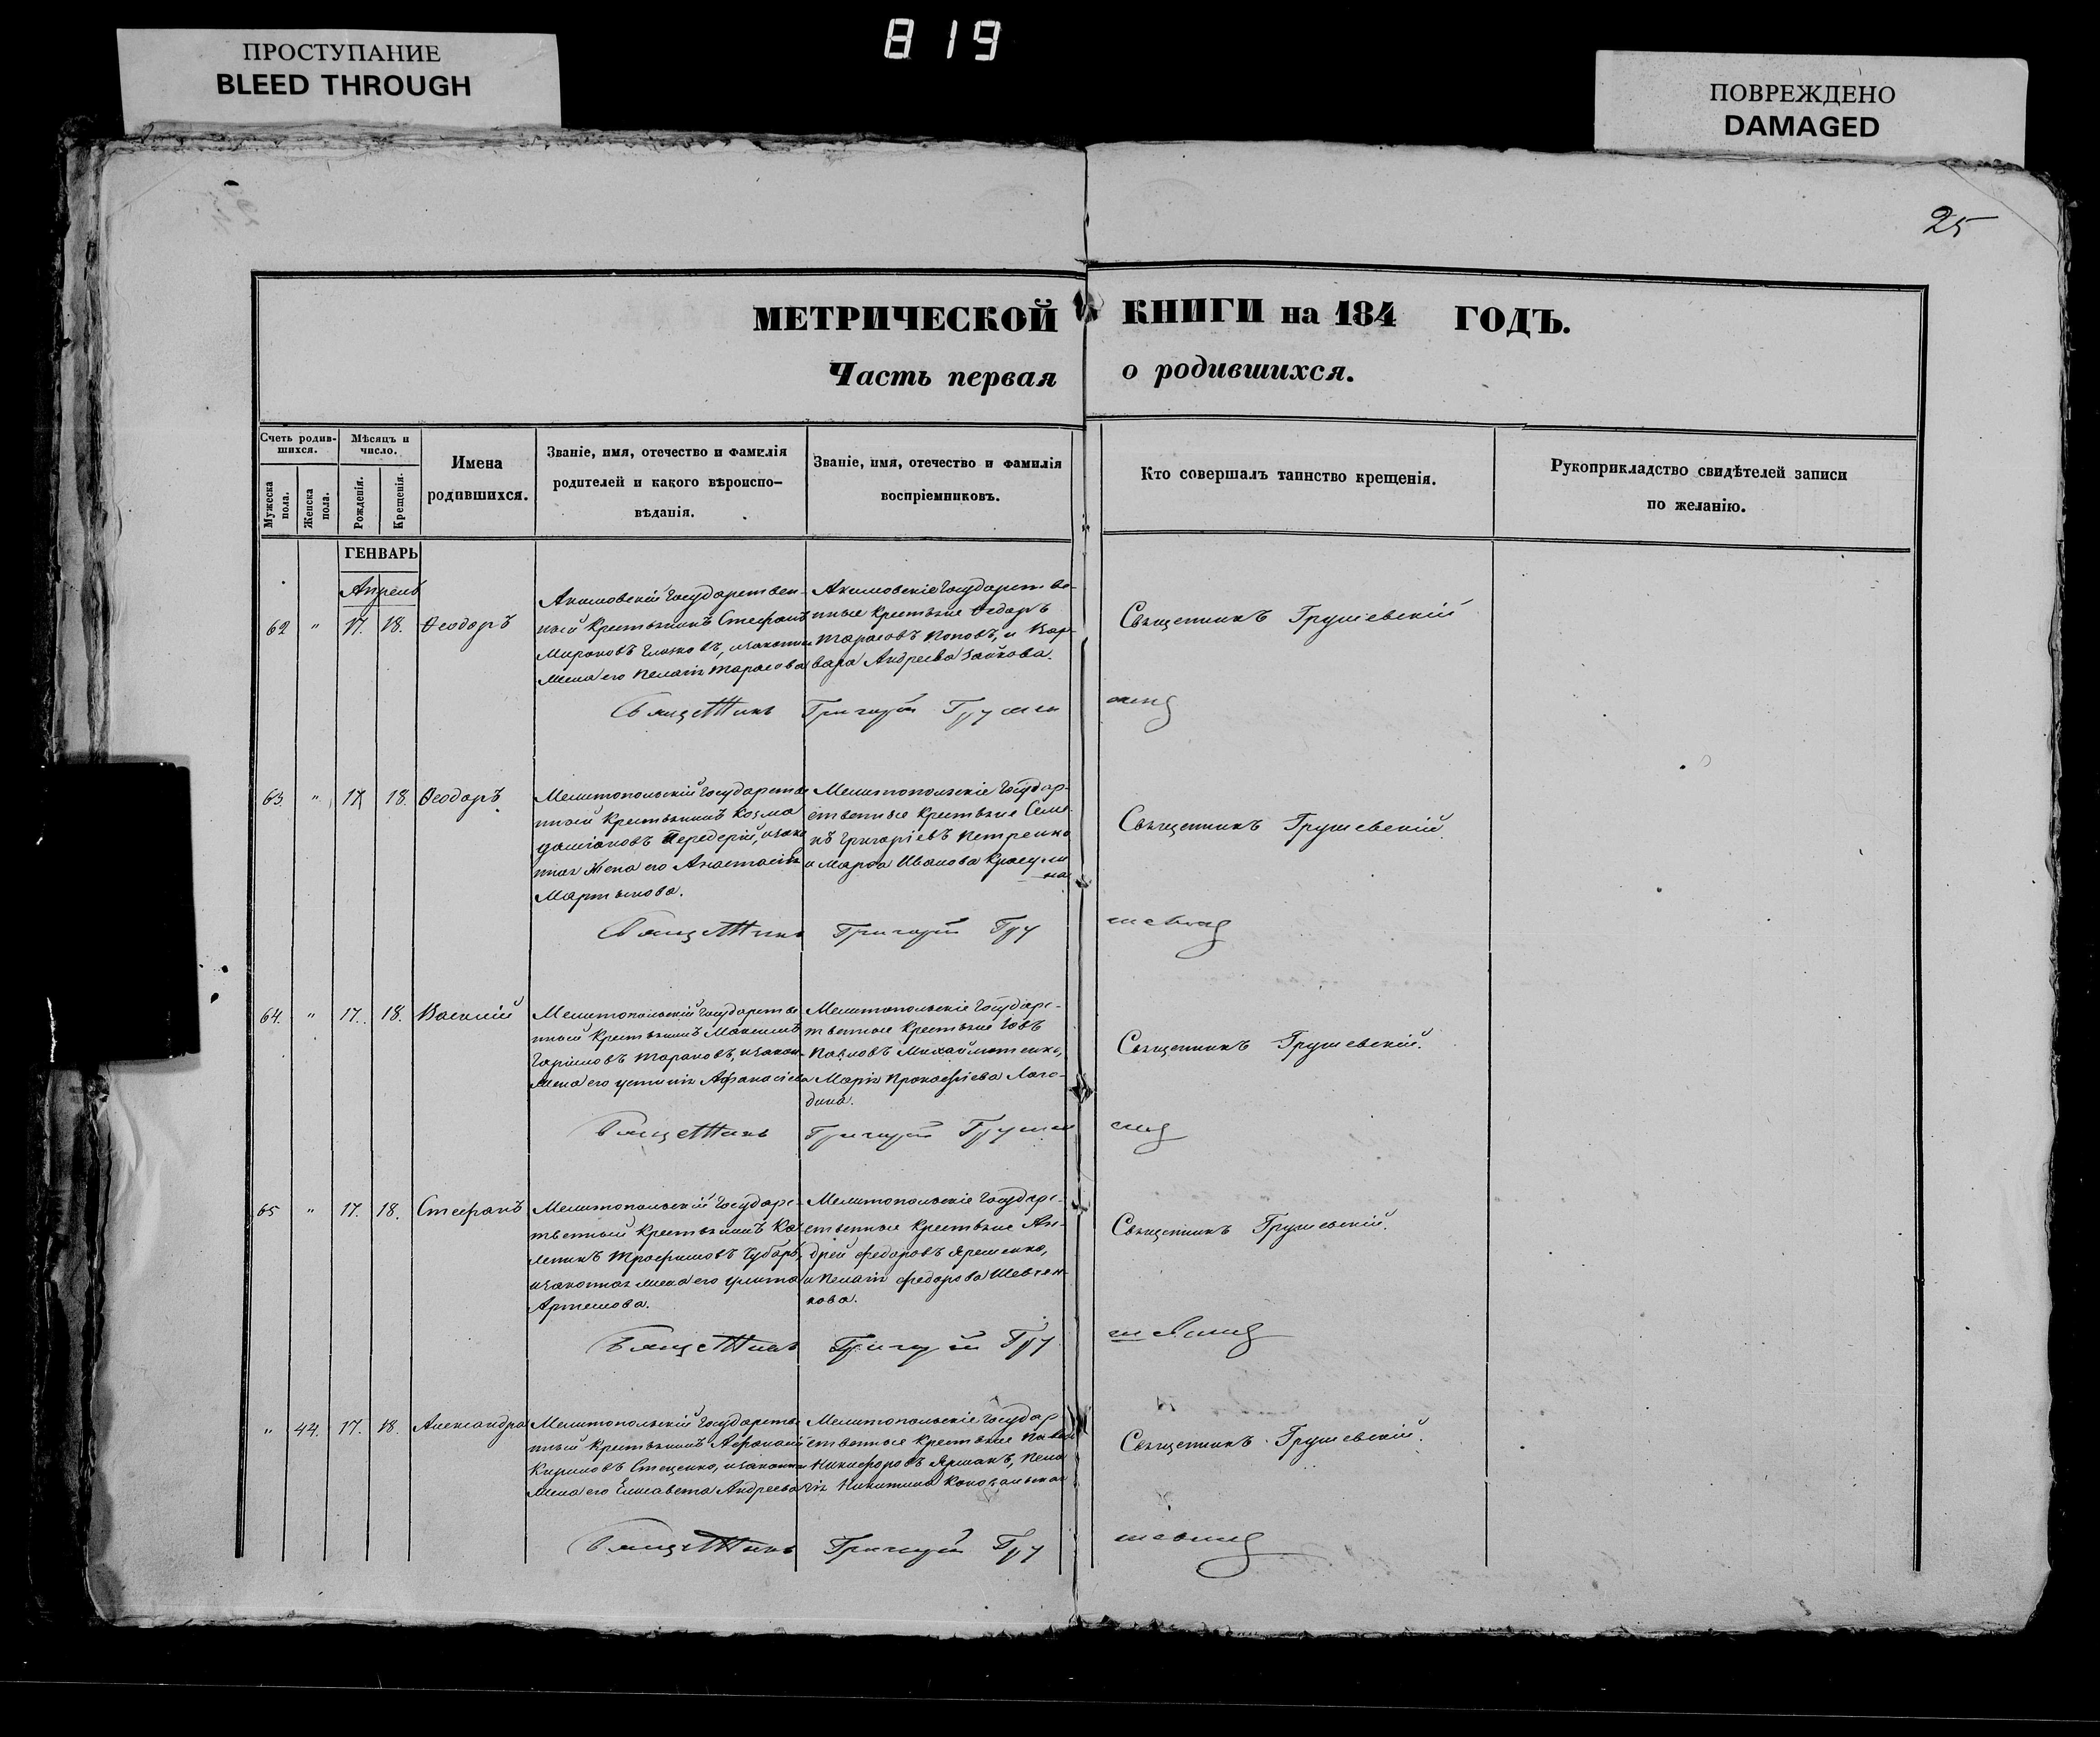 819
ПРОСТУПАНИЕ
BLEED THROUGH
ПОВРЕЖДЕНО
DAMAGED
25
МЕТРИЧЕСКОЙ КНИГИ на 184 ГОДЪ.
Часть первая о родившихся.
Счетъ родив-
шихся.
Мужеска пола.
Женска пола.
Мѣсяцъ и
число.
Рожденія.
Крещенія.
Имена
родившихся.
Званіе, имя, отечество и фамилія
родителей и какого вѣроиспо-
вѣданія.
Званіе, имя, отечество и фамилія
воспріемниковъ.
Кто совершалъ таинство крещенія.
Рукоприкладство свидѣтелей записи
по желанію.
ГЕНВАРЬ
Апрель
62 " 17. 18. Ѳеодоръ
Акимовскій Государствен-
ный крестьянинъ Стефанъ
Мироновъ, изаконная
жена его Пелагія Тарасова
Акимовскіе Государстве-
нные крестьяне Ѳедоръ
Тарасовъ Поповъ, и Вар-
вара Андреева Зайкова.
Священникъ Грушевскій
Священникъ Григорій Грушевскій
63. " 17 18. Ѳеодоръ
Мелитопольскій Государстве
нный крестьянинъ Козма
Даміановъ Передерій, изако
нная жена его Анастасія
Мартынова.
Мелитопольскіе Государ-
ственные крестьяне Семе
нъ Григоріевъ Петренко
и Марѳа Иванова
Священникъ Грушевскій.
Священникъ Григорій Грушевскій
64. " 17. 18. Василій
Мелитопольскій Государстве
нный крестьянинъ Максимъ
Тарановъ, изакон-
жена его Устинія Афанасіева
Мелитопольскіе Государс-
твенные крестьяне Іовъ
Павловъ
Марія Прокофіева Лаго-
дина.
Священникъ Грушевскій.
Священникъ Григорій Грушевскій
65 " 17. 18. Стефанъ
Мелитопольскій Государс-
твенный крестьянинъ Ка
Трофимовъ Губарь,
изаконная жена его Улита
Артемова.
Мелитопольскіе Государ-
ственные крестьяне Ан-
дрей Федоровъ Яременко,
и Пелагія Федорова Шевчен-
кова.
Священникъ Грушевскій.
Священникъ Григорій Грушевскій
" 44. 17. 18. Александра
Мелитопольскій Государстве
нный крестьянинъ Афанасій
Кириловъ Стеценко, изаконная
жена его Елисавета Андреева
Мелитопольскіе Государ
ственные крестьяне Павелъ
Никифоровъ Ярмакъ, Пела
гія Никитина
Священникъ Грушевскій.
Священникъ Григорій Грушевскій